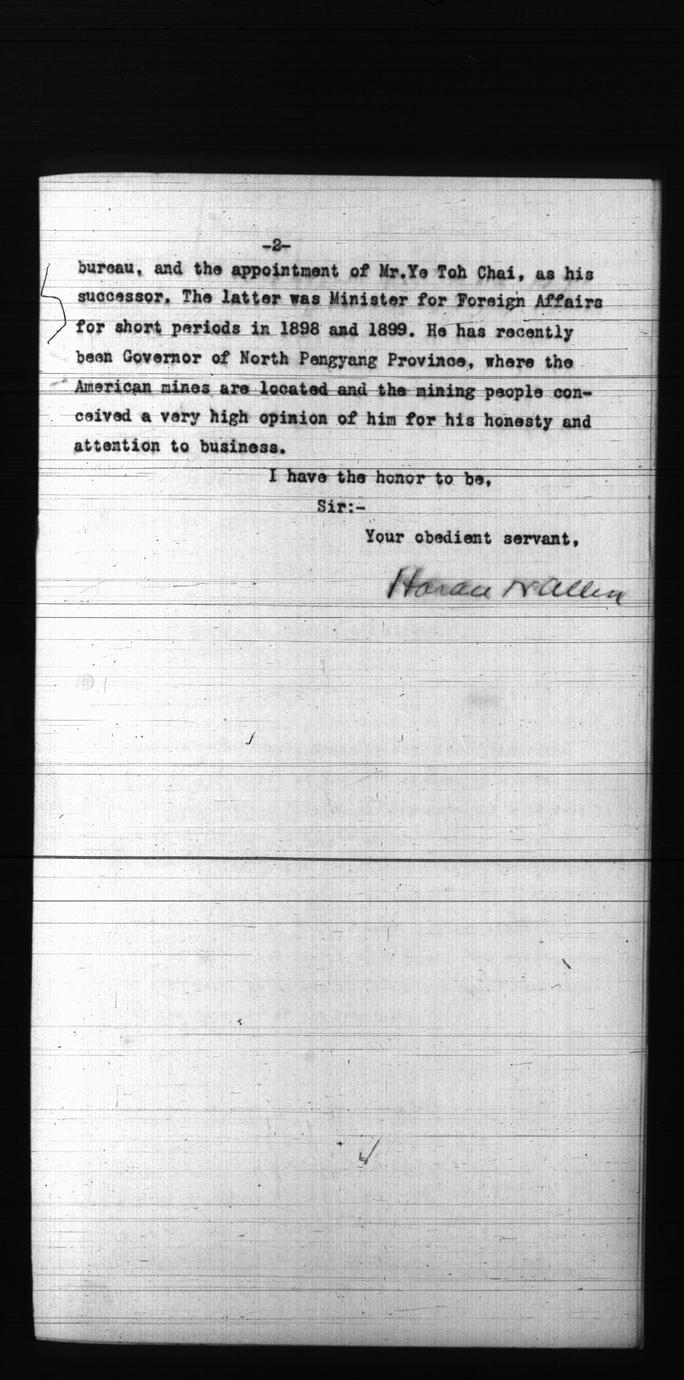 -2-
bureau, and the appointment of Mr.Ye Toh Chai, as his
successor. The latter was Minister for Foreign Affairs
for short periods in 1898 and 1899. He has recently
been Governor of North Pengyang Province, where the
American mines are located and the mining people con-
ceived a very high opinion of him for his honesty and
attention to business.
I have the honor to be,
Sir:-
Your obedient servant,
Horace N Allen